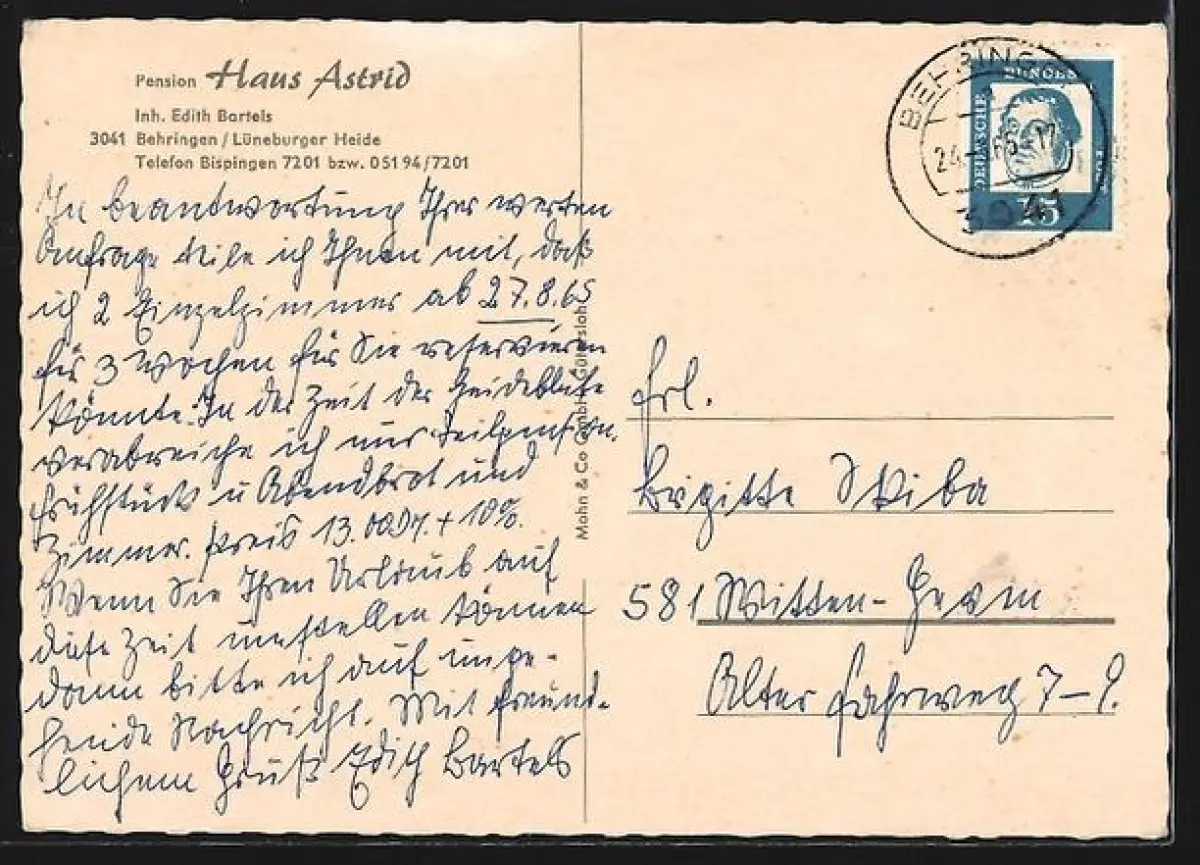 Pension Haus Astrid
Inh. Edith Bartels
3041 Behringen / Lüneburger Heide
Telefon Bispingen 7201 bzw. 05194/7201
In beantwortung Ihrer werten
Anfrage teile ich Ihnen mit, daß
ich 2 Einzelzimmer ab 27.8.65
für 3 Wochen für Sie reservieren
könnte. In der Zeit der Heideblüte
verabreiche ich nur Teilpension.
Frühstück u Abendbrot und
Zimmer. Preis 13.00 DM. + 10%.
Wenn Sie Ihren Urlaub auf
diese Zeit umstellen können
dann bitte ich auf umge-
hende Nachricht. Mit freund-
lichem Gruß Edith Bartels
Mohn & Co GmbH Gütersloh
BEHRING
24. 65-17
3041
DEUTSCHE BUNDES
15
Frl.
Brigitte Skiba
581 Witten-
Alter Fahrweg 7-9.